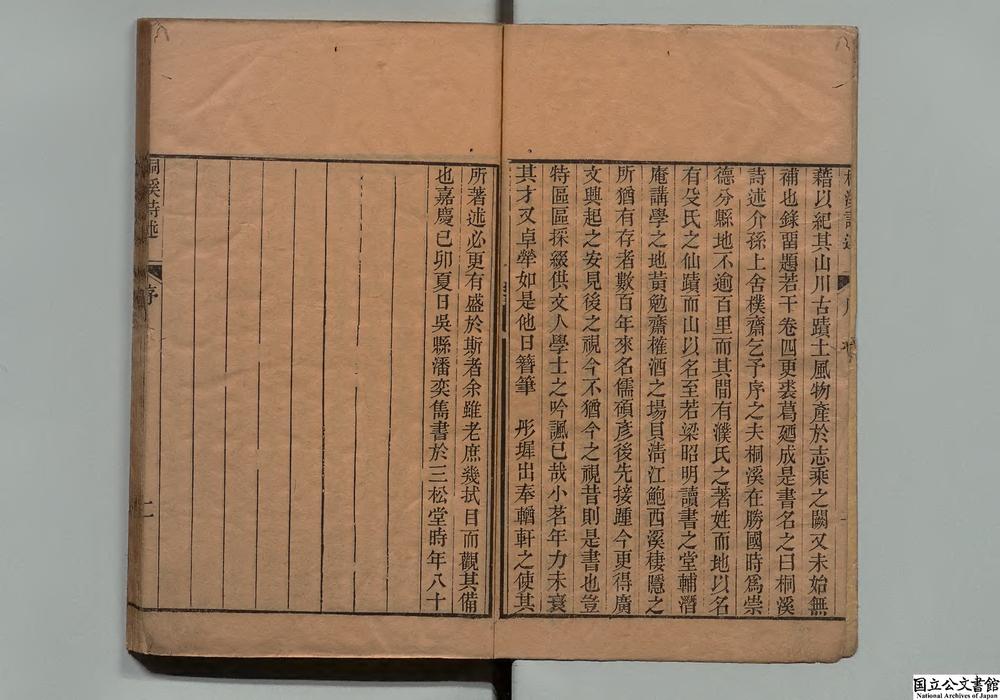 藉以紀其山川古蹟土風物產於志乘之闕又未始無
補也錄畱題若干卷四更裘葛廼成是書名之曰桐溪
詩述介孫上舍樸齋乞予序之夫桐溪在勝國時爲崇
德分縣地不逾百里而其間有濮氏之著姓而地以名
有殳氏之仙蹟而山以名至若梁昭明讀書之堂輔潛
庵講學之地黃勉齋榷酒之場貝淸江鮑西溪棲隱之
所猶有存者數百年來名儒碩彥後先接踵今更得廣
文興起之安見後之視今不猶今之視昔則是書也豈
特區區採綴供文人學士之吟諷已哉小茗年力未衰
其才又卓犖如是他日簪筆 彤墀出奉輶軒之使其
所著述必更有盛於斯者余雖老庶幾拭目而觀其備
也嘉慶己卯夏日吳縣潘奕雋書於三松堂時年八十
桐溪詩述
序
二
国立公文書館
National Archives of Japan